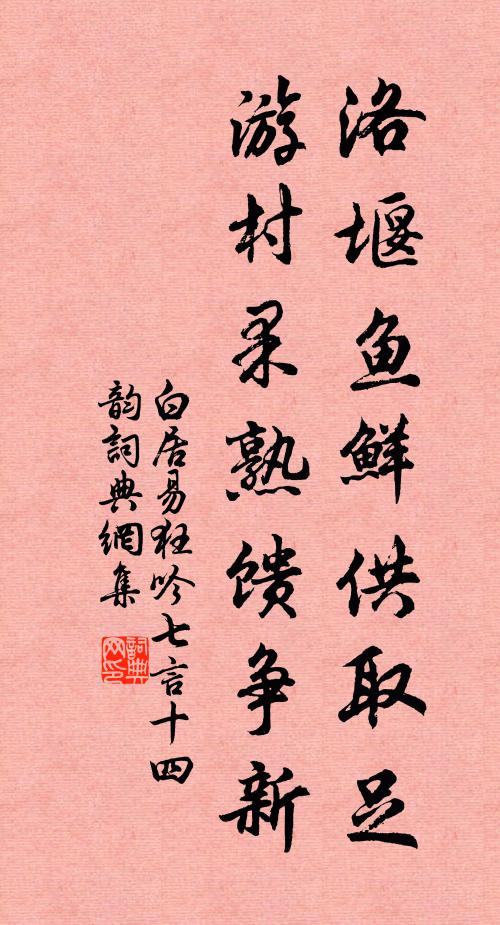 洛堰鱼鮮供取足
游村果熟馈争新
白居易狂吟七言十四
韵詞典網集
詞典网印